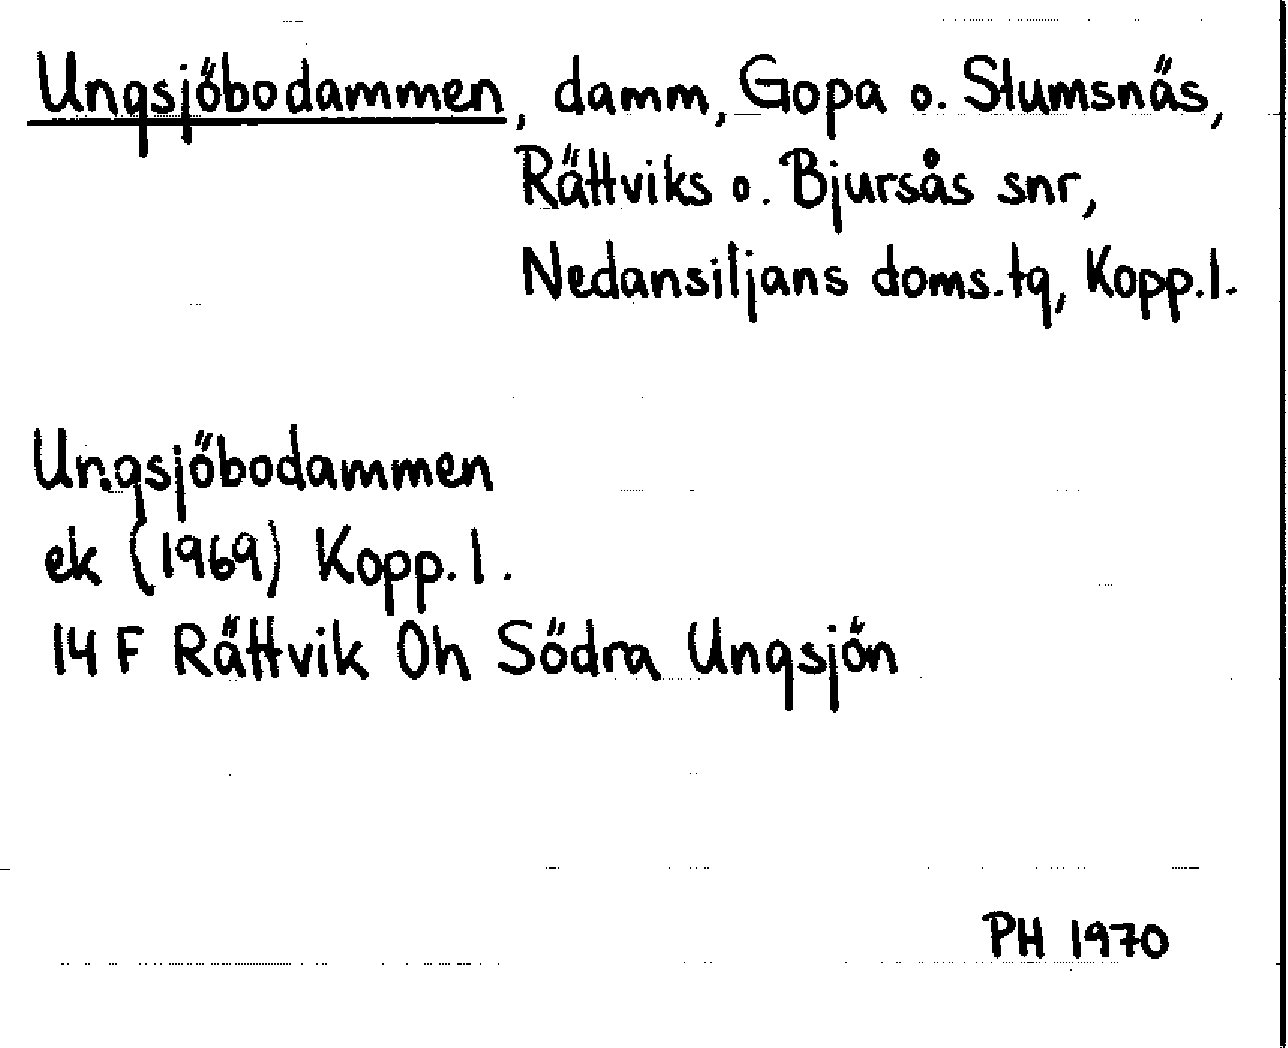 Ungsjöbodammen, damm, Gopa o. Slumsnäs,
Rättviks o. Bjursås snr,
Nedansiljans doms.tg, Kopp.l.
Ungsjöbodammen
ek (1969) Kopp.l.
14 F Rättvik Oh Södra Ungsjön
PH 1970